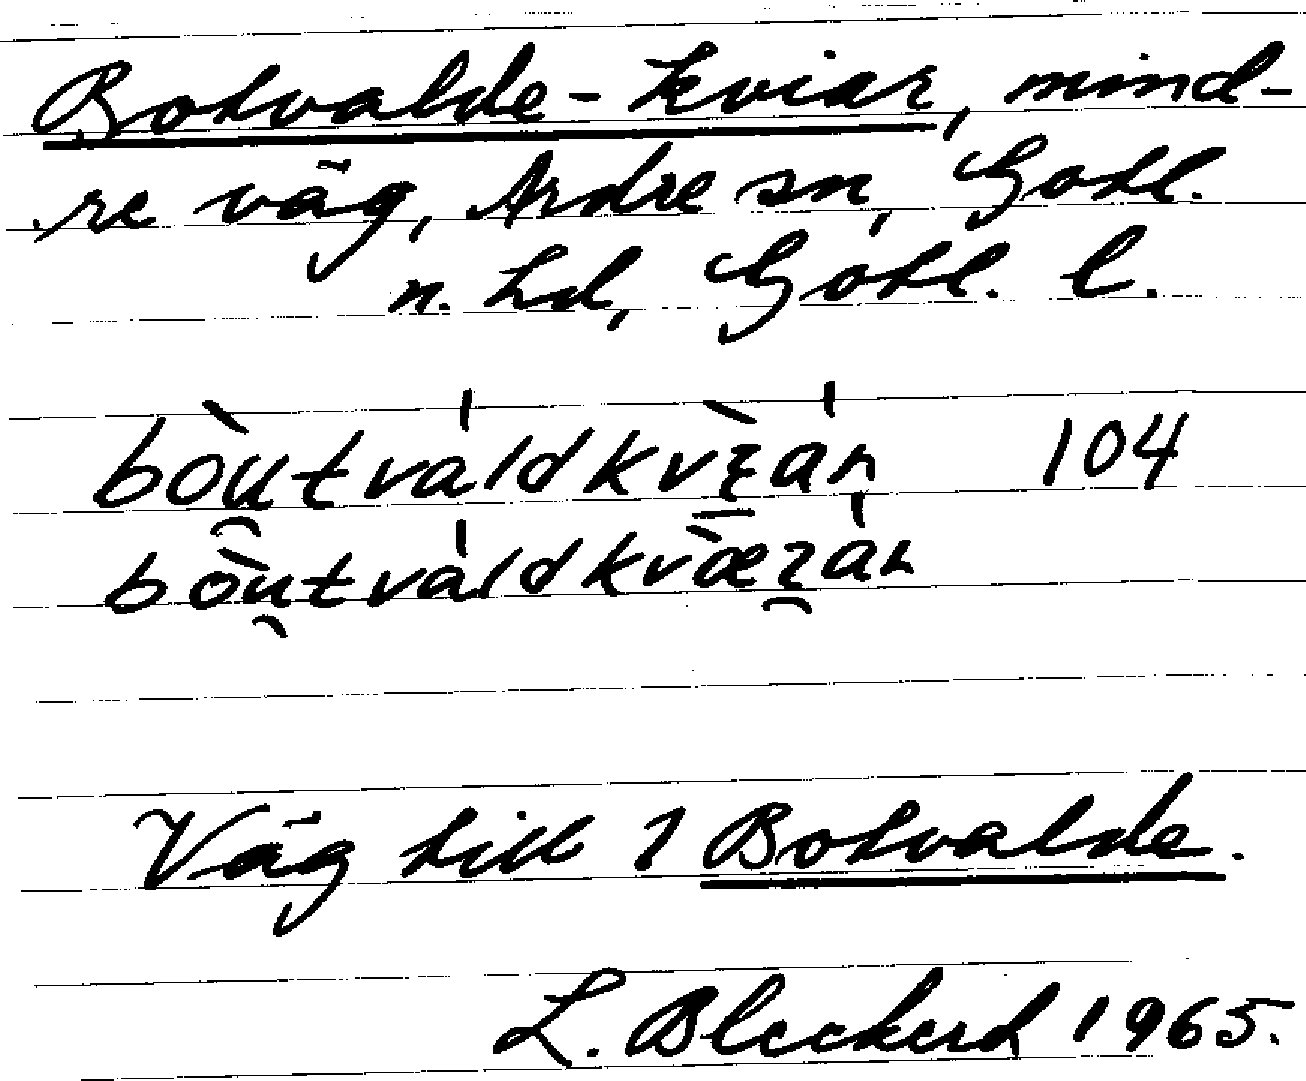 Botvalde-kviar, mind-
re väg, Ardre sn, Gotl.
n. hd, Gotl. l.
bòu̯tváldkvɪ̀ár 104
bòu̯tváldkvæ̀ár
Väg till 1 Botvalde.
L. Bleckert 1965.